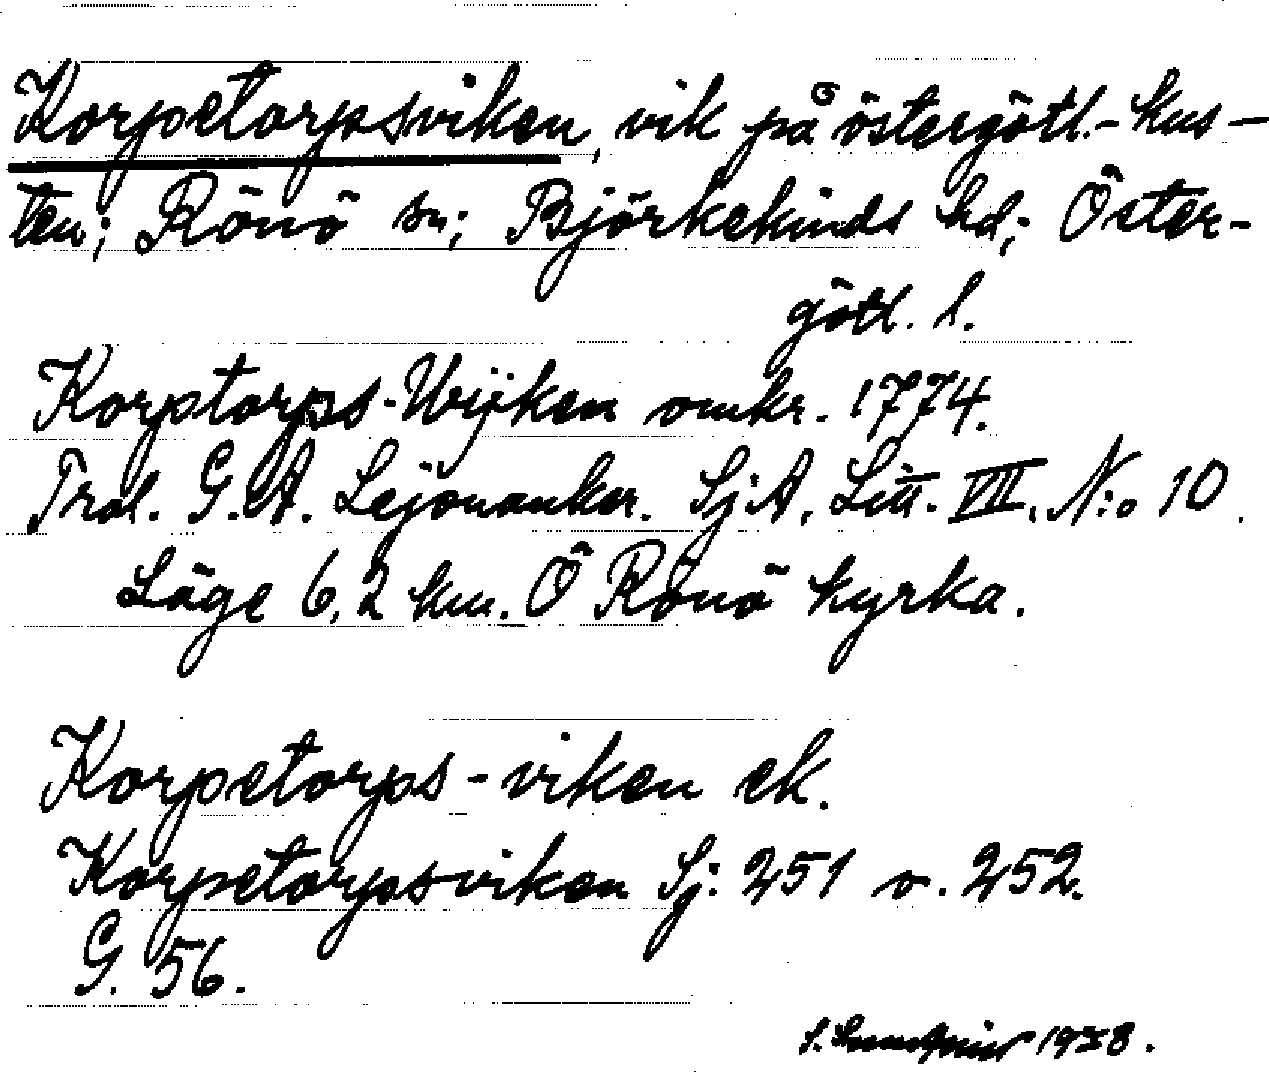 Korpetorpsviken, vik på östergötl.-kus-
ten; Rönö sn; Björkekinds hd; Öster-
götl. l.
Korptorps-Wijken omkr. 1774.
Trol. G.A. Lejonanker. SjA, Litt. VIII, N:o 10.
Läge 6,2 km. Ö Rönö kyrka.
Korpetorps-viken ek.
Korpetorpsviken Sj: 251 o. 252.
G. 56.
S. 1938.